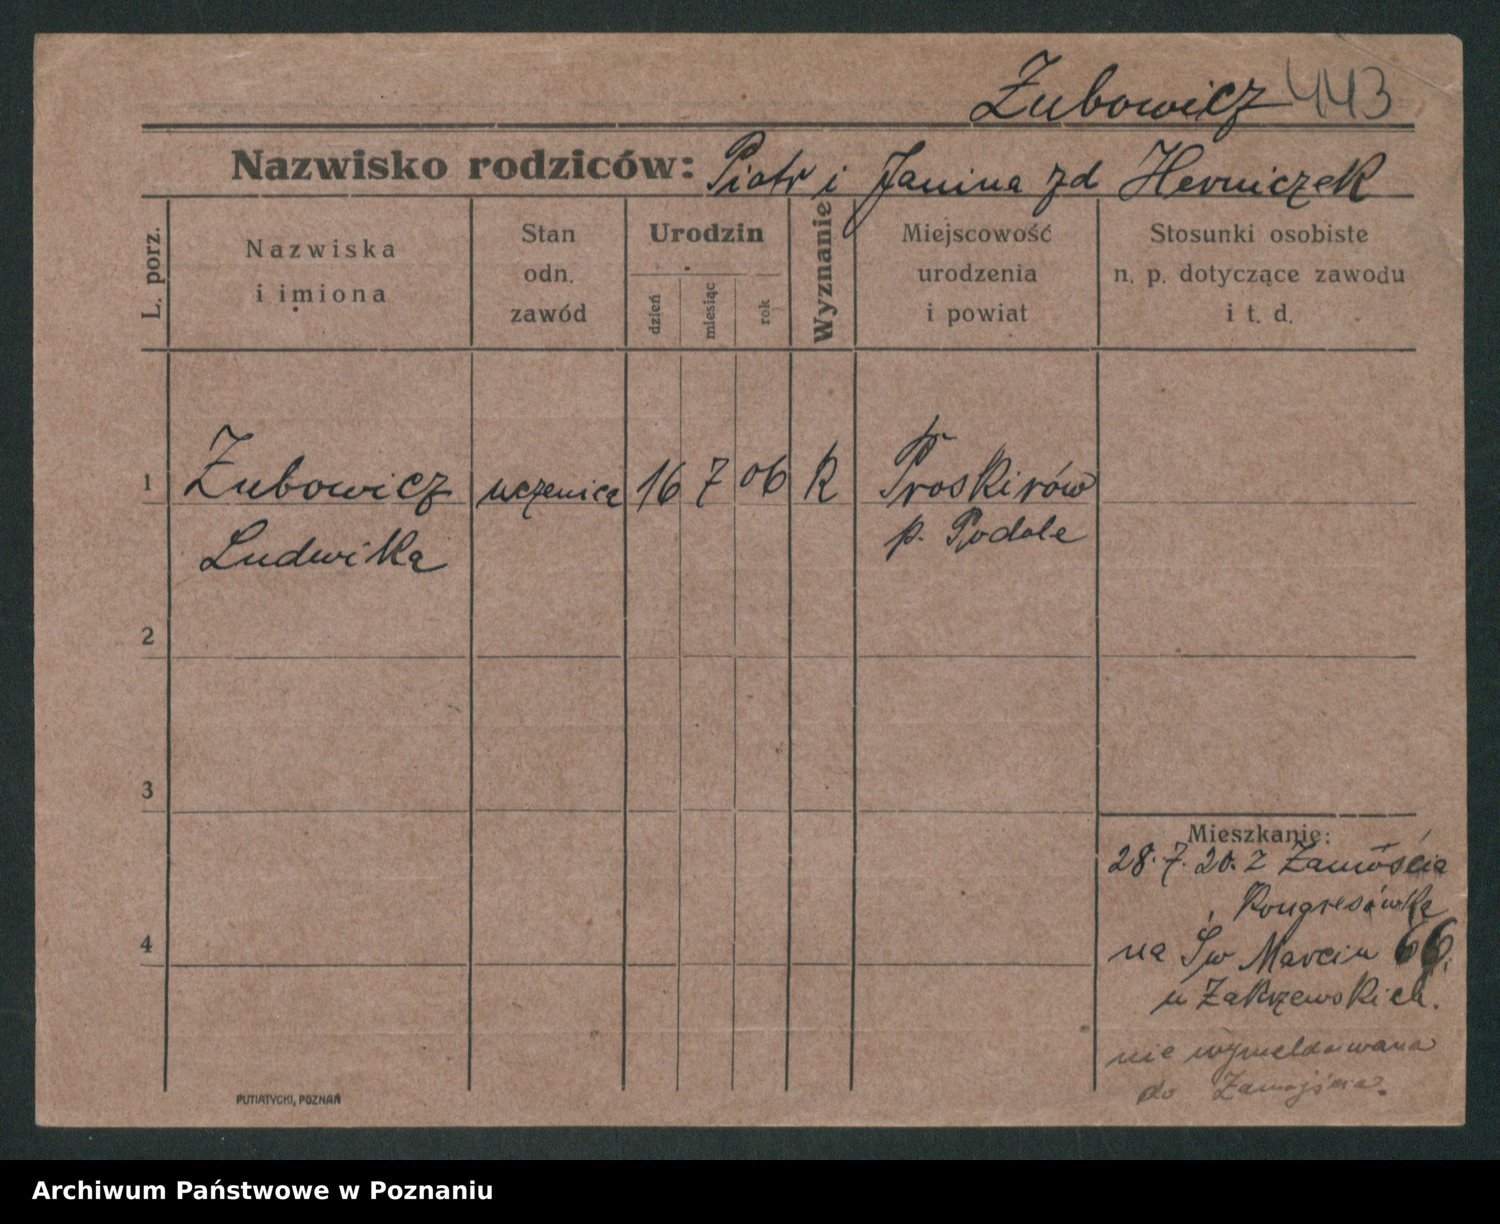 Zubowicz 443
Nazwisko rodziców: Piotr i Janina zd Herniczek
L. porz.
Nazwiska
i imiona
Stan
odn.
zawód
Urodzin
dzień
miesiąc
rok
Wyznanie
Miejscowość
urodzenia
i powiat
Stosunki osobiste
n. p. dotyczące zawodu
i t. d.
1 Zubowicz uczenica 16 7 06 R Proskirów
Ludwika p. Podole
2
3
4
Mieszkanie:
28. 7. 20. z Zamościa
Kongresówka
na Św Marcin 66.
u Zakrzewskich.
nie wymeldowana
do Zamojścia.
PUTIATYCKI, POZNAŃ
Archiwum Państwowe w Poznaniu